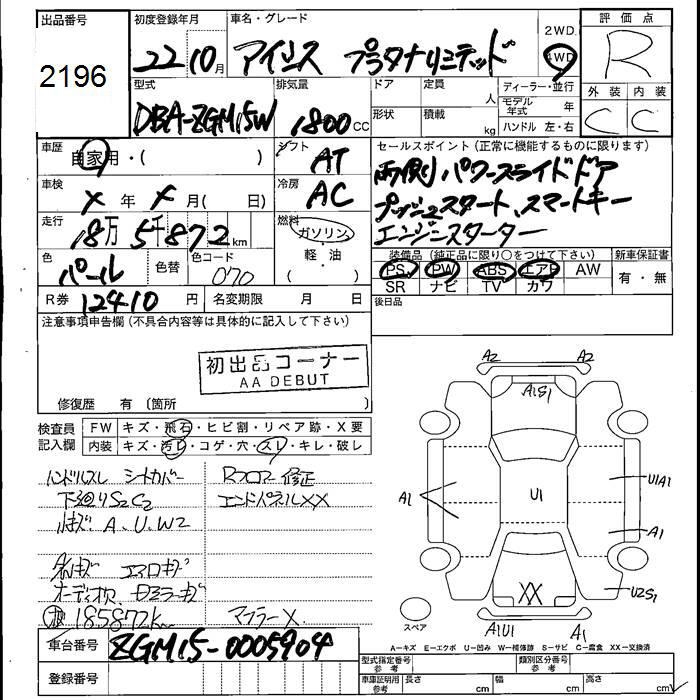 出品番号
2196
初度登録年月
22 10月
車名・グレード
アイシス プラタナリミテッド
2WD
4WD
評価点
R
外装 内装
C C
型式
DBA-ZGM15W
排気量
1800cc
ドア 定員 人
形状 積載 kg
ディーラー・並行
モデル年式 年
ハンドル 左・右
車歴
自家用・( )
シフト
AT
セールスポイント(正常に機能するものに限ります)
両側パワースライドドア
プッシュスタート、スマートキー
エンジンスターター
車検
年 月( 日)
冷房
AC
走行
18万5千872km
燃料
ガソリン
軽・油
( )
色
パール
色替
色コード
070
装備品(純正品に限り○をつけて下さい)
PS PW ABS エアB AW
SR ナビ TV カワ
新車保証書
有・無
R券 12410円
名変期限 月 日
後日品
注意事項申告欄(不具合内容等は具体的に記入して下さい)
初出品コーナー
AA DEBUT
修復歴 有 〔箇所 〕
検査員記入欄
FW キズ・飛石・ヒビ割・リペア跡・X要
内装 キズ・汚レ・コゲ・穴・スレ・キレ・破レ
ハンドルスレ シートカバー
下廻りS2C2
Rフロアー修正
エンドパネルXX
A、U、W2
185872km
マフラーX
車台番号
ZGM15-0005904
登録番号
A2 A2
A1S1
A1
U1
U1A1
A1
U2S1
XX
スペア
A1U1 A1
A=キズ E=エクボ U=凹み W=補修跡 S=サビ C=腐食 XX=交換済
型式指定番号 参考
類別区分番号 参考
車庫証明用 参考
長さ cm
幅 cm
高さ cm